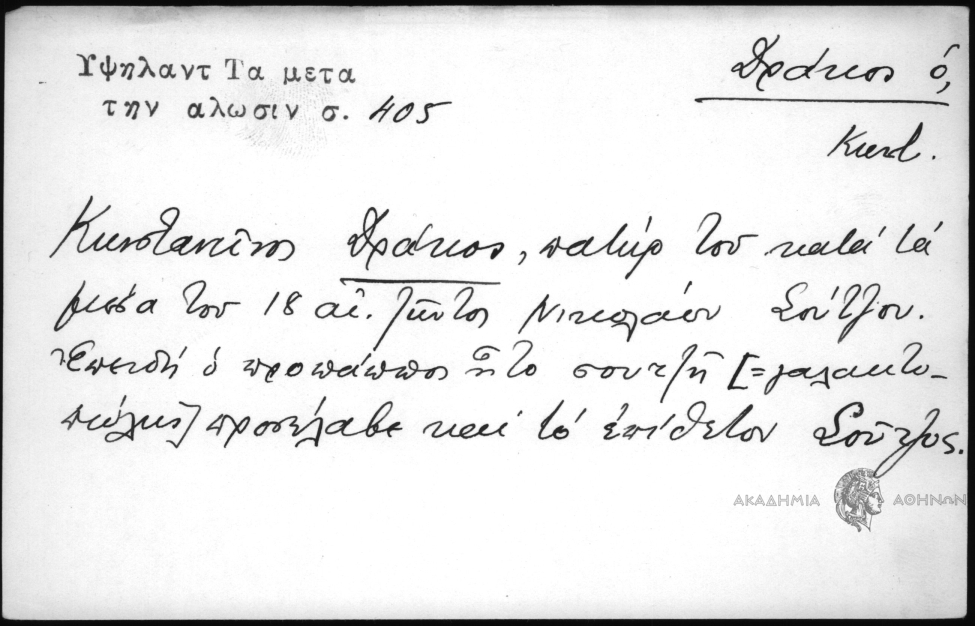 Υψηλαντ Τα μετα
την αλωσιν σ. 405
Δράκος ὁ,
Κωνλ.
Κωνσταντῖνος Δράκος, πατήρ τοῦ κατά τά
μέσα τοῦ 18 αἰ. ζῶντος Νικολάου Σούτζου.
Ἐπειδή ὁ προπάππος ἦτο σουτζῆ [=γαλακτο-
πώλης] προσέλαβε καί τό ἐπίθετον Σοῦτζος.
ΑΚΑΔΗΜΙΑ ΑΘΗΝΩΝ